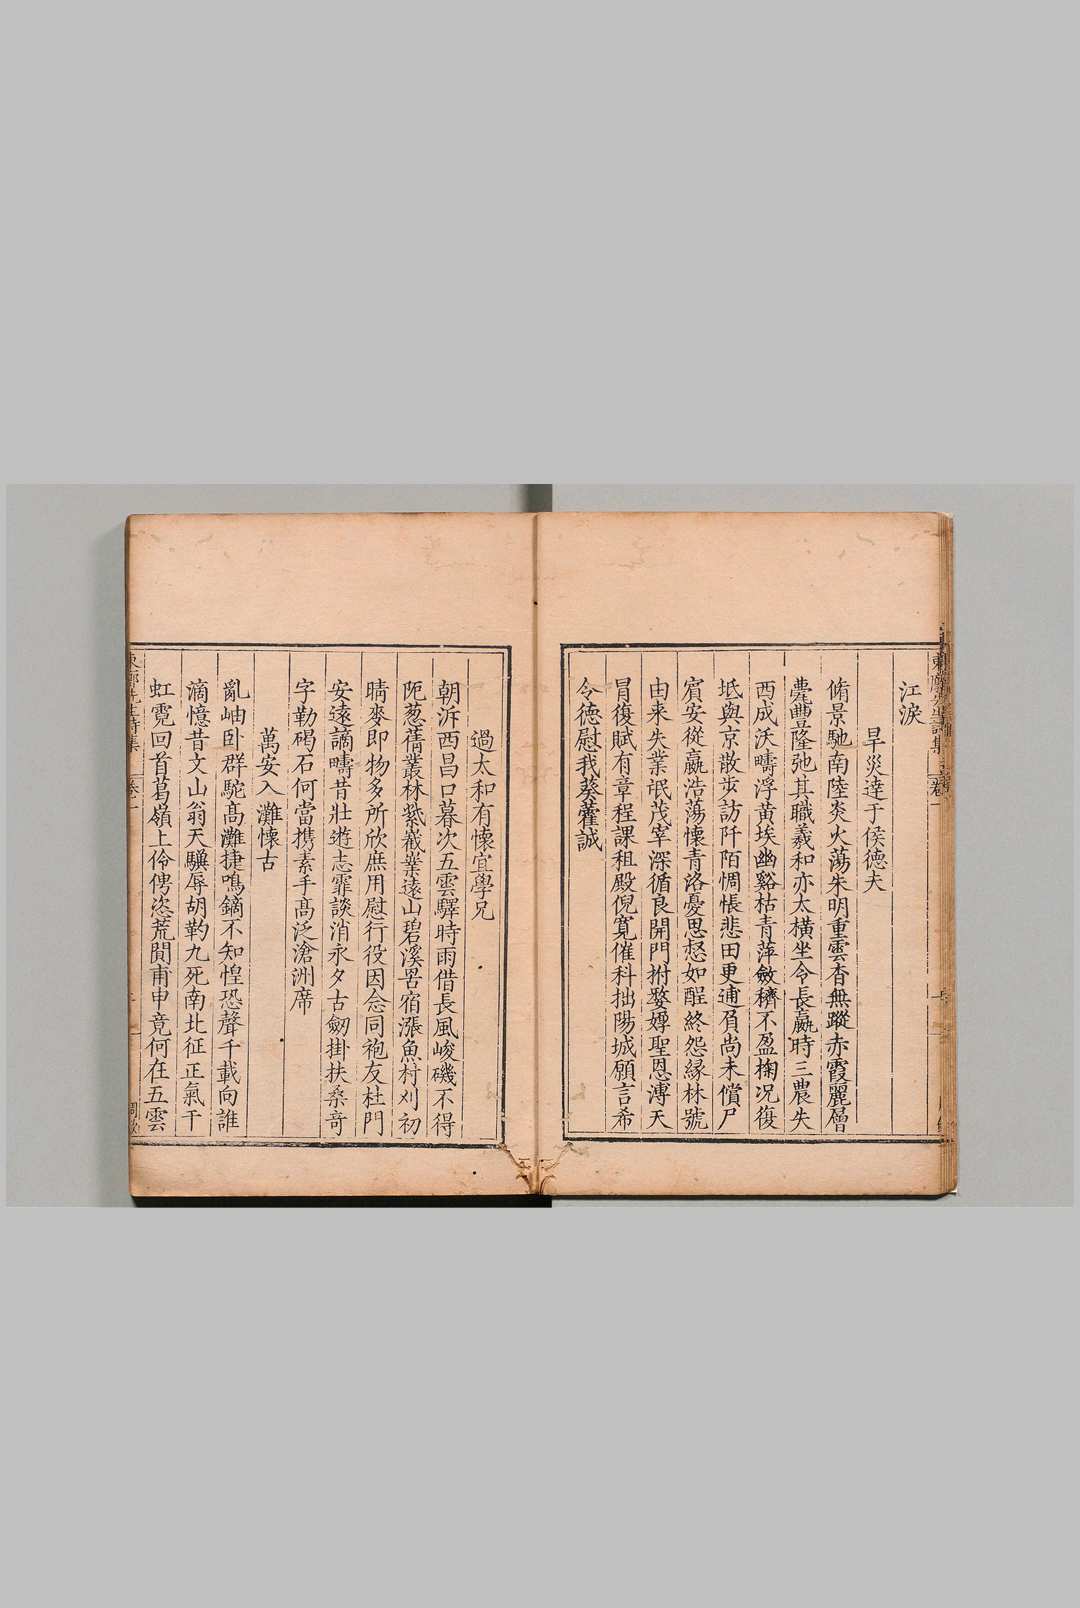 江淚
旱災達于侯德夫
脩景馳南陸炎火蕩朱明重雲杳無蹤赤霞麗層
甍豐隆弛其職羲和亦太橫坐令長嬴時三農失
西成沃疇浮黃埃幽谿枯青萍斂穧不盈掬况復
坻與京散步訪阡陌惆悵悲田更逋負尚未償尸
賓安從嬴浩蕩懷青洛憂思怒如酲終怨緣林號
由来失業氓茂宰深循良開門拊嫠嫥聖恩溥天
冐復賦有章程課租殿倪寬催科拙陽城願言希
令德慰我葵藿誠
過太和有懷宜學兄
朝泝西昌口暮次五雲驛時雨借長風峻磯不得
阨葱蒨叢林紫嶻嶪遠山碧溪罟宿漲魚村刈初
晴麥即物多所欣庶用慰行役因念同袍友杜門
安遠謫疇昔壯遊志霏談消永夕古劒掛扶桑竒
字勒碣石何當携素手髙泛滄洲席
萬安入灘懷古
亂岫卧群駝髙灘捷鳴鏑不知惶恐聲千載向誰
滴憶昔文山翁天驥辱胡靮九死南北征正氣干
虹霓回首葛嶺上伶俜恣荒閴甫申竟何在五雲